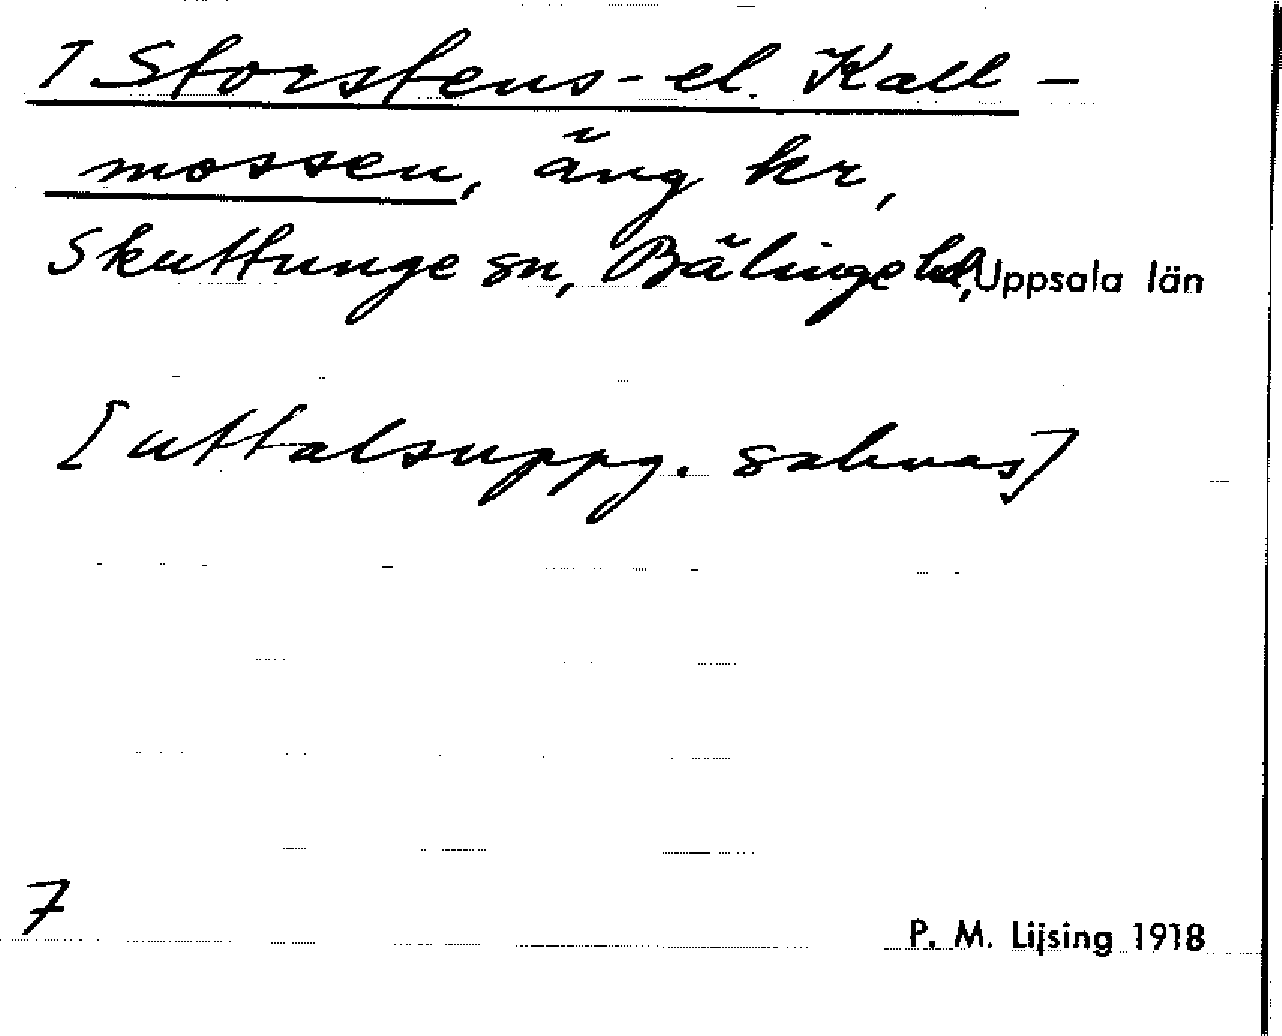 I Storstens- el. Kall-
mossen, äng kr,
Skuttunge sn, Bälinge hd, Uppsala län
[uttalsuppg. saknas]
7
P. M. Lijsing 1918